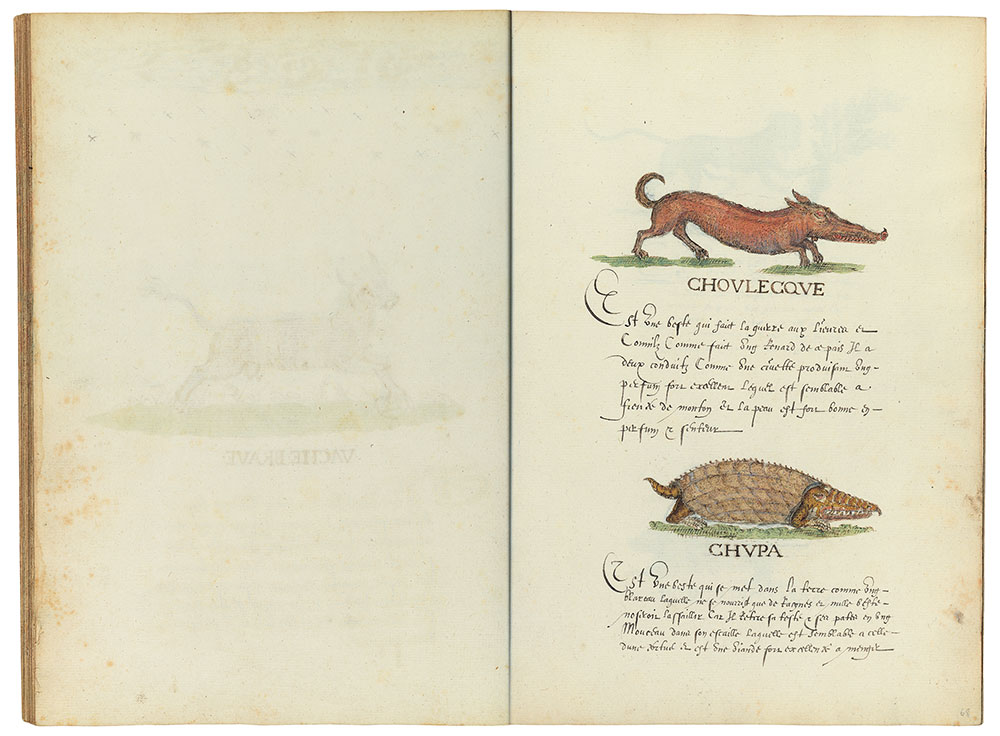 VACHE BRAVE
CHOVLECQVE
Est Une beste qui faict la guerre aux Lieures et
Connilz Comme faict Ung Renard de ce pais Il a
deux conduitz Comme Une Ciuette produisant Ung
perfum fort excellent Lequel est semblable a
fiende de mouton et la peau est fort bonne en
perfum & senteur
CHVPA
Est Une beste qui se met dans la terre comme Ung
blereau laquelle ne se nourist que de Racynes et nulle beste
noseroit lassaillir Car Il Retire sa teste & ses pates en Ung
Monceau dans son escaille laquelle est Semblable a celle
dune tortue et est Une Viande fort excellente a menger
68